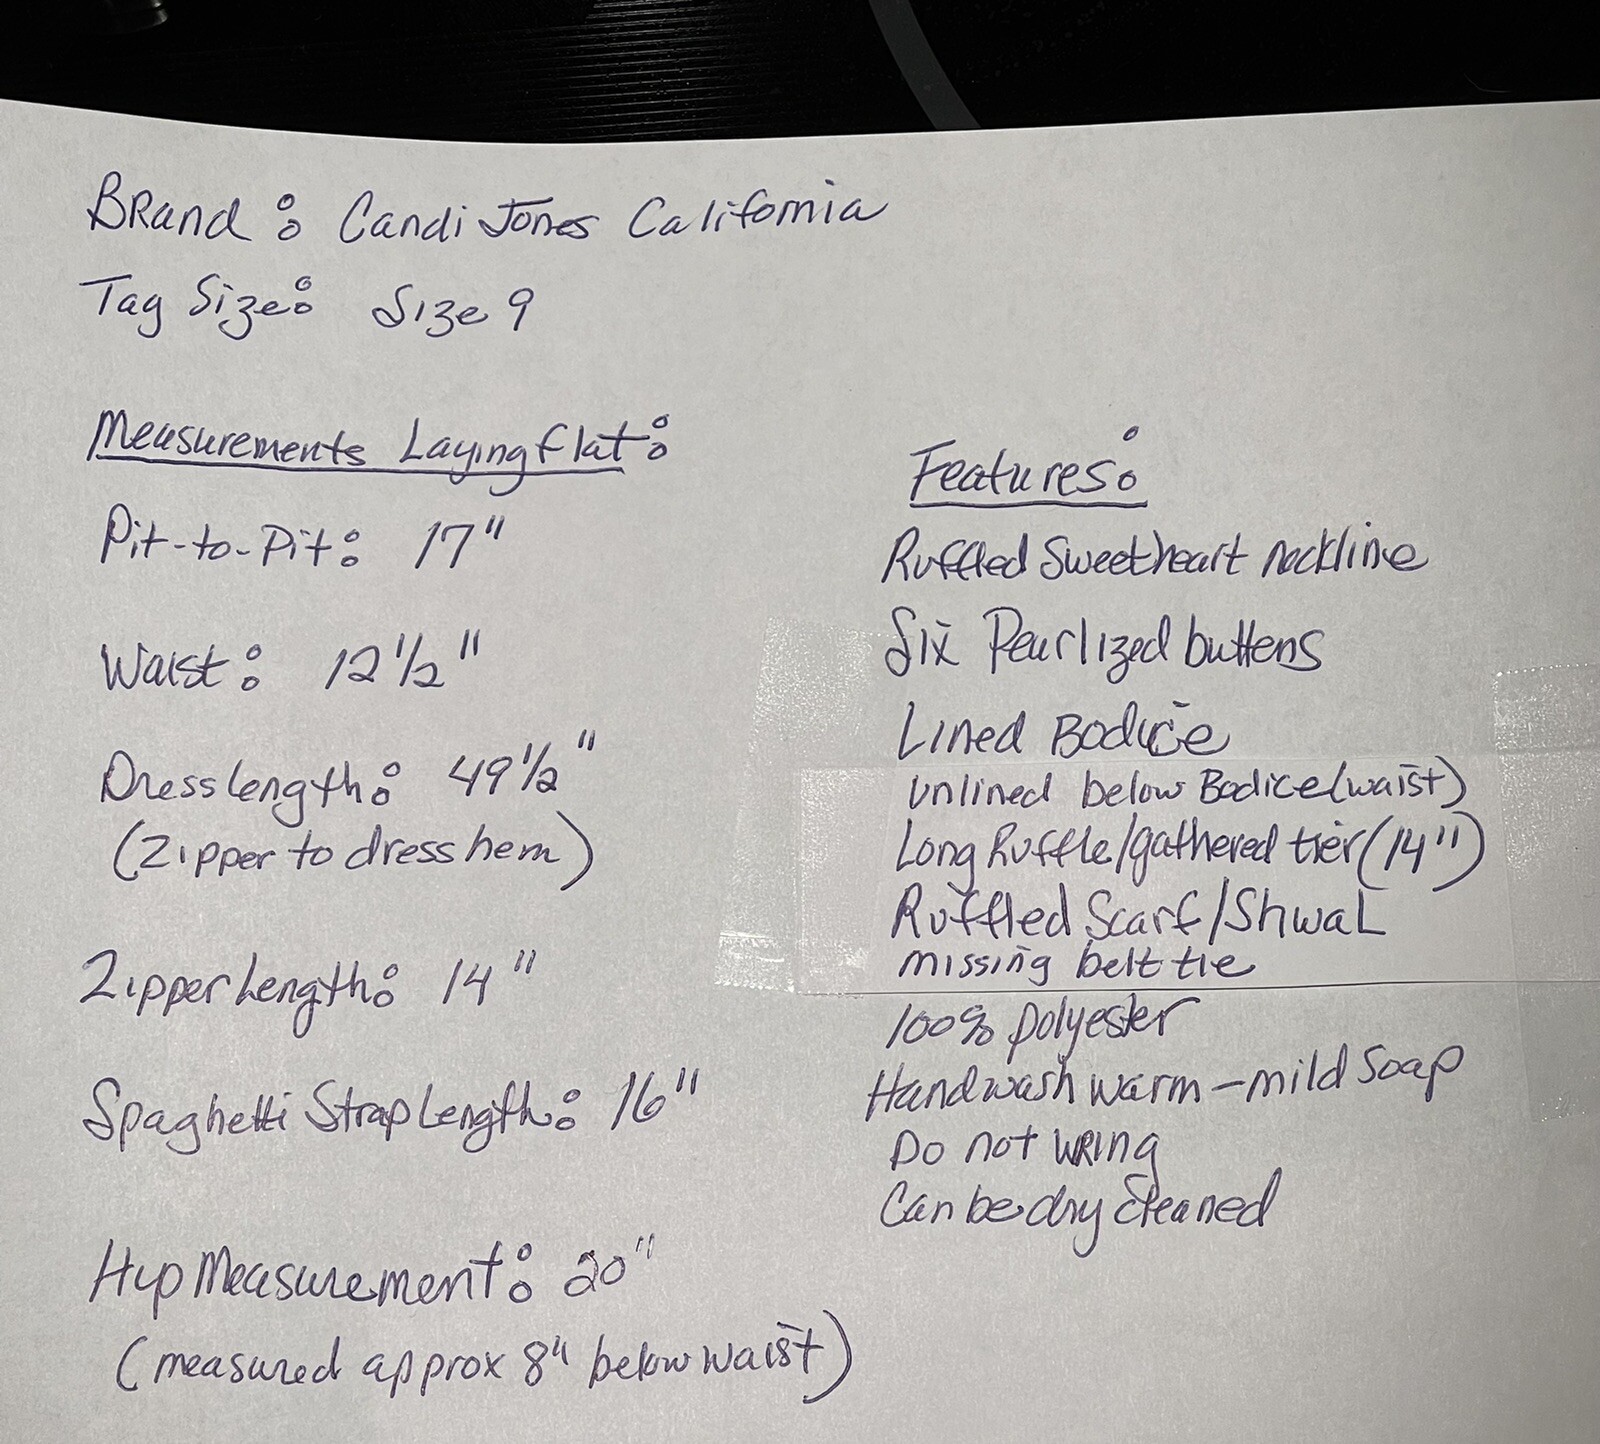 Brand: Candi Jones California
Tag Size: Size 9
Measurements Laying flat:
Pit-to-Pit: 17"
Waist: 12 1/2"
Dress length: 49 1/2"
(Zipper to dress hem)
Zipper Length: 14"
Spaghetti Strap Length: 16"
Hip Measurement: 20"
(measured approx 8" below waist)
Features:
Ruffled Sweetheart neckline
Six Pearlized buttons
Lined Bodice
Unlined below Bodice (waist)
Long Ruffle/gathered tier (14")
Ruffled Scarf/Shwal
missing belt tie
100% polyester
Handwash warm - mild soap
Do not wring
Can be dry cleaned